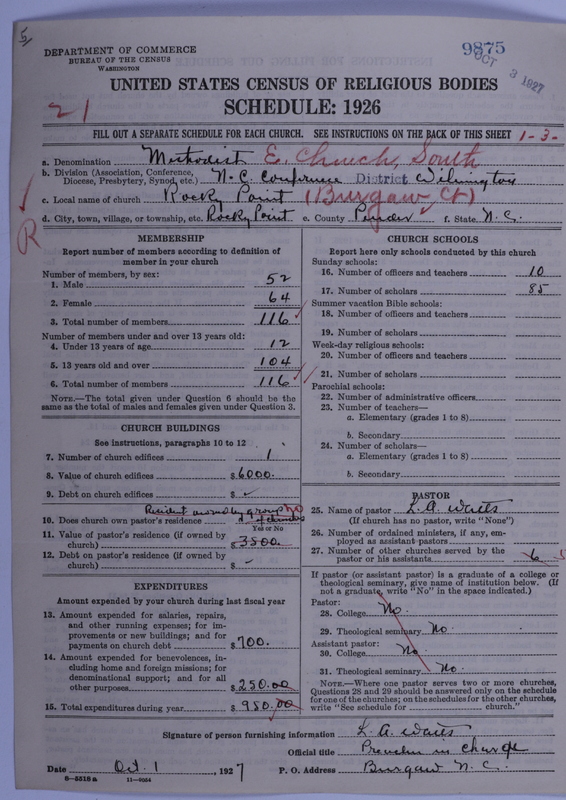 5
DEPARTMENT OF COMMERCE
BUREAU OF THE CENSUS
WASHINGTON
9875
OCT 3 1927
UNITED STATES CENSUS OF RELIGIOUS BODIES
SCHEDULE: 1926
21
FILL OUT A SEPARATE SCHEDULE FOR EACH CHURCH. SEE INSTRUCTIONS ON THE BACK OF THIS SHEET 1-3-
a. Denomination Methodist E. Church, South
b. Division (Association, Conference, Diocese, Presbytery, Synod, etc.) N.C. Conference District Wilmington
c. Local name of church Rocky Point (Burgaw Ct)
d. City, town, village, or township, etc. Rocky Point e. County Pender f. State N.C.
R
MEMBERSHIP
Report number of members according to definition of
member in your church
Number of members, by sex:
1. Male 52
2. Female 64
3. Total number of members 116
Number of members under and over 13 years old:
4. Under 13 years of age 12
5. 13 years old and over 104
6. Total number of members 116
NOTE.—The total given under Question 6 should be the
same as the total of males and females given under Question 3.
CHURCH BUILDINGS
See instructions, paragraphs 10 to 12
7. Number of church edifices 1
8. Value of church edifices $6000.
9. Debt on church edifices $
owned by group of churches
10. Does church own pastor's residence no
Yes or No
11. Value of pastor's residence (if owned by
church) $3500
12. Debt on pastor's residence (if owned by
church) $
EXPENDITURES
Amount expended by your church during last fiscal year
13. Amount expended for salaries, repairs,
and other running expenses; for im-
provements or new buildings; and for
payments on church debt $700.
14. Amount expended for benevolences, in-
cluding home and foreign missions; for
denominational support; and for all
other purposes $250.00
15. Total expenditures during year $950.00
CHURCH SCHOOLS
Report here only schools conducted by this church
Sunday schools:
16. Number of officers and teachers 10
17. Number of scholars 85
Summer vacation Bible schools:
18. Number of officers and teachers
19. Number of scholars
Week-day religious schools:
20. Number of officers and teachers
21. Number of scholars
Parochial schools:
22. Number of administrative officers
23. Number of teachers—
a. Elementary (grades 1 to 8)
b. Secondary
24. Number of scholars—
a. Elementary (grades 1 to 8)
b. Secondary
PASTOR
25. Name of pastor L. A. Watts
(If church has no pastor, write "None")
26. Number of ordained ministers, if any, em-
ployed as assistant pastors
27. Number of other churches served by the
pastor or his assistants 6 5
If pastor (or assistant pastor) is a graduate of a college or
theological seminary, give name of institution below. (If
not a graduate, write "No" in the space indicated.)
Pastor:
28. College No
29. Theological seminary No
Assistant pastor:
30. College No
31. Theological seminary No
NOTE.—Where one pastor serves two or more churches,
Questions 28 and 29 should be answered only on the schedule
for one of the churches; on the schedules for the other churches,
write "See schedule for church."
Signature of person furnishing information L. A. Watts
Official title Preacher in charge
Date Oct. 1, 1927 P. O. Address Burgaw N. C.
8-5518a 11-9054